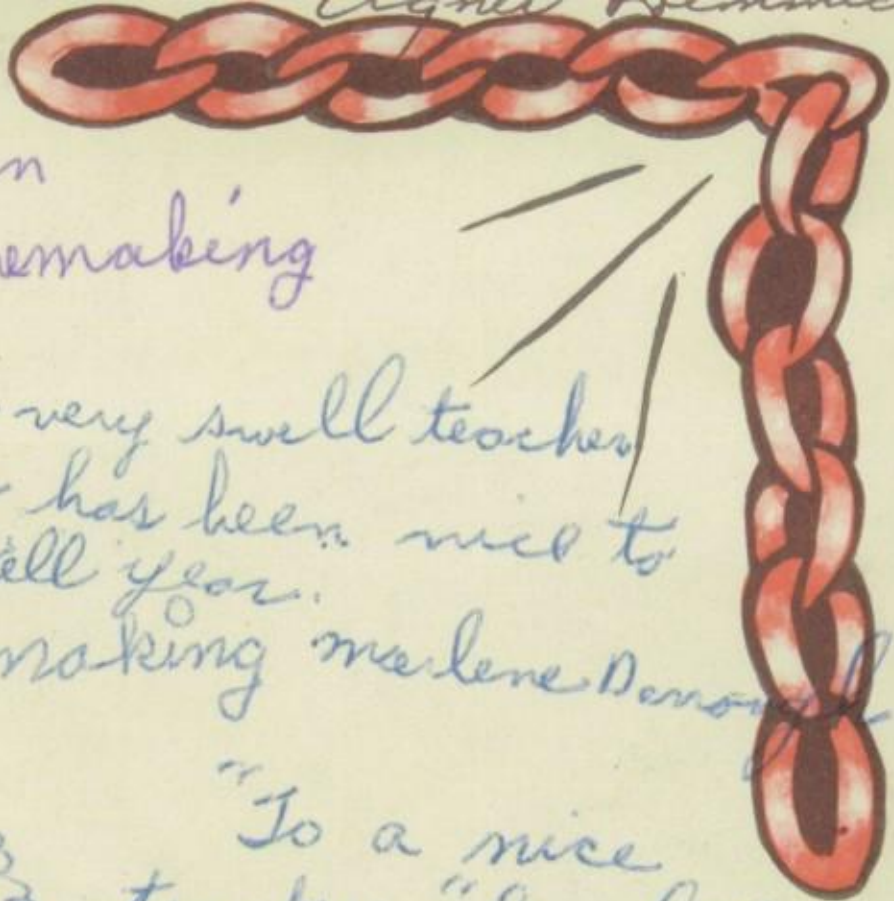 Agnes
n
emaking
very swell teacher
has been nice to
ell year.
making Marlene
"To a nice